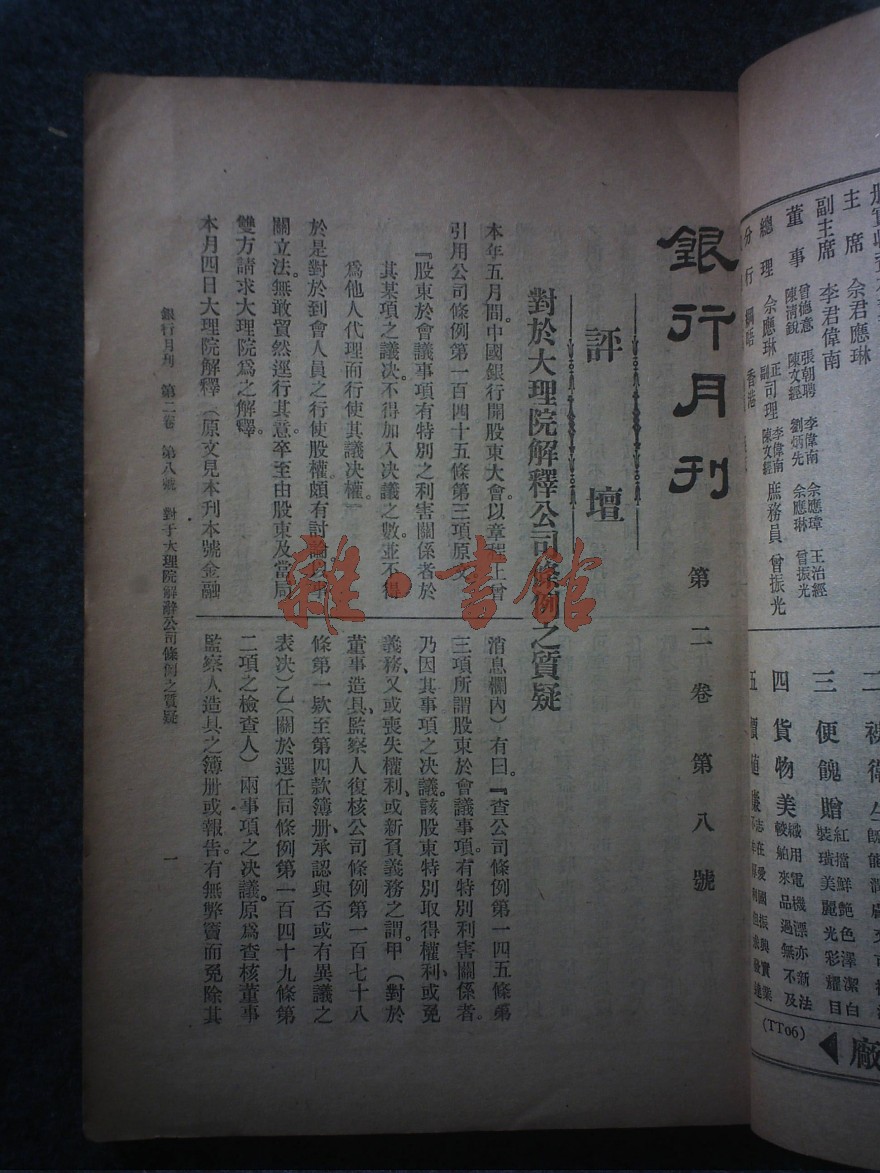 銀行月刊 第二卷第八號
評壇
對於大理院解釋公司條例之質疑
本年五月間。中國銀行開股東大會。以章程上曾
引用公司條例第一百四十五條第三項原文
『股東於會議事項有特別之利害關係者於
其某項之議决。不得加入决議之數。並不得
爲他人代理而行使其議决權。』
於是對於到會人員之行使股權。頗有討論。以事
關立法。無敢貿然逕行其意。卒至由股東及當局
雙方請求大理院爲之解釋。
本月四日大理院解釋(原文見本刊本號金融
消息欄內)有曰。『查公司條例第一四五條第
三項所謂股東於會議事項。有特別利害關係者。
乃因其事項之决議。該股東特別取得權利、或免
義務、又或喪失權利、或新負義務之謂。甲(對於
董事造具、監察人復核公司條例第一百七十八
條第一欵至第四款簿册、承認與否或有異議之
表决)乙(關於選任同條例第一百四十九條第
二項之檢查人)兩事項之决議。原爲查核董事
監察人造具之簿册或報告。有無弊竇而免除其
銀行月刊 第二卷 第八號 對于大理院解釋公司條例之質疑 一
雜·書館
主席 佘君應琳
副主席 李君偉南
董事 曾德意 張朝聘 李偉南 佘應瑋 王治經
陳淸銳 陳文經 劉炳先 佘應琳 曾振光
總理 佘應琳 正司理 李偉南 副司理 陳文經 庶務員 曾振光
分行 香港
三 便餽贈 紅擋鮮艷色澤潔白
裝璜美麗光彩耀目
四 貨物美 織用電機漂亦新法
較舶來品過無不及
五 志在愛國振興實業
(TT06)
廠